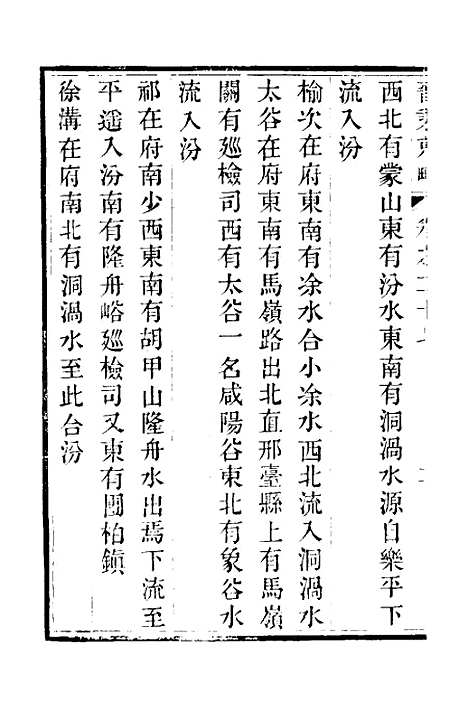 晉乘蒐略
西北有蒙山東有汾水東南有洞渦水源自樂平下
流入汾
榆次在府東南有涂水合小涂水西北流入洞渦水
太谷在府東南有馬嶺路出北直邢臺縣上有馬嶺
關有廵檢司西有太谷一名咸陽谷東北有象谷水
流入汾
祁在府南少西東南有胡甲山隆舟水出焉下流至
平遥入汾南有隆舟峪廵檢司又東有團柏鎮
徐溝在府南北有洞渦水至此合汾